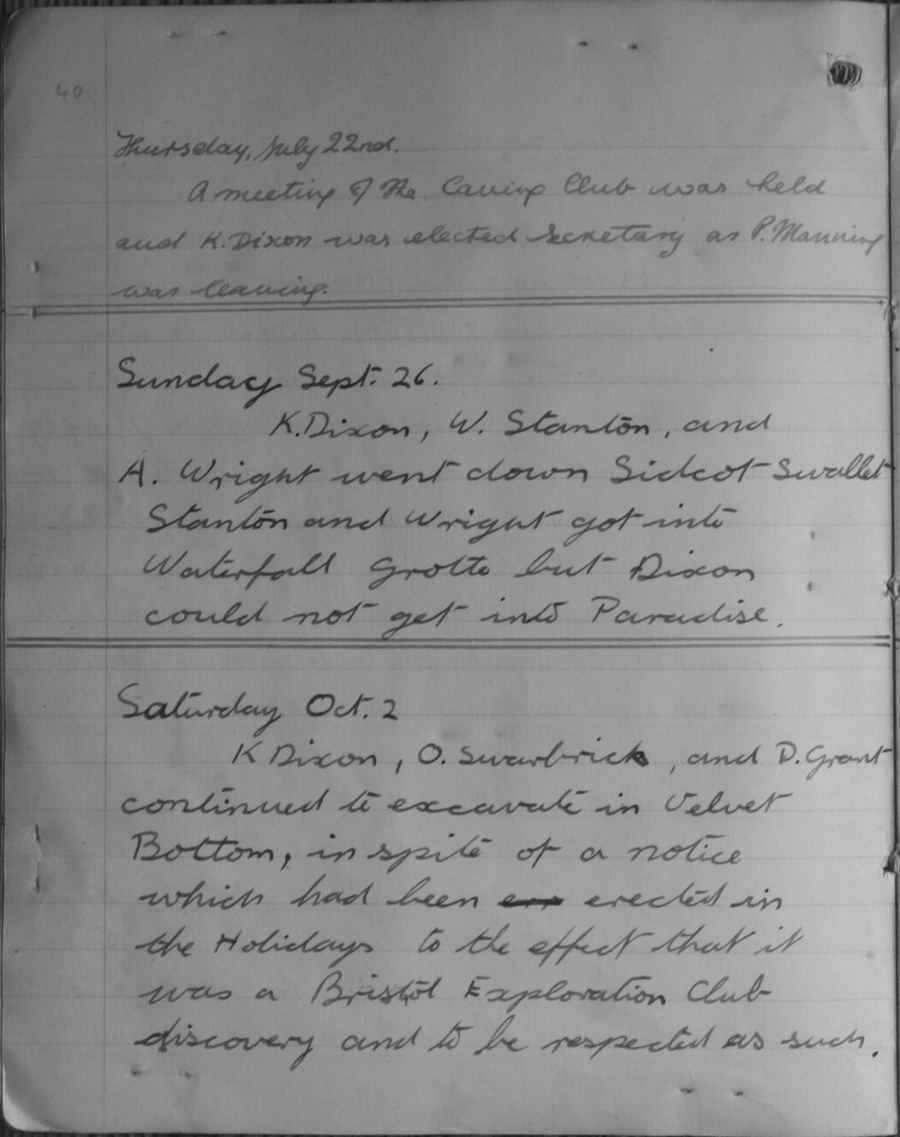 40
Thursday, July 22nd.
A meeting of the Caving Club was held
and K. Dixon was elected Secretary as P. Manning
was leaving.
Sunday Sept. 26.
K. Dixon, W. Stanton, and
A. Wright went down Sidcot Swallet
Stanton and Wright got into
Waterfall Grotto but Dixon
could not get into Paradise.
Saturday Oct. 2
K Dixon, O. Swarbrick, and D. Grant
continued to excavate in Velvet
Bottom, in spite of a notice
which had been erected in
the Holidays to the effect that it
was a Bristol Exploration Club
discovery and to be respected as such.